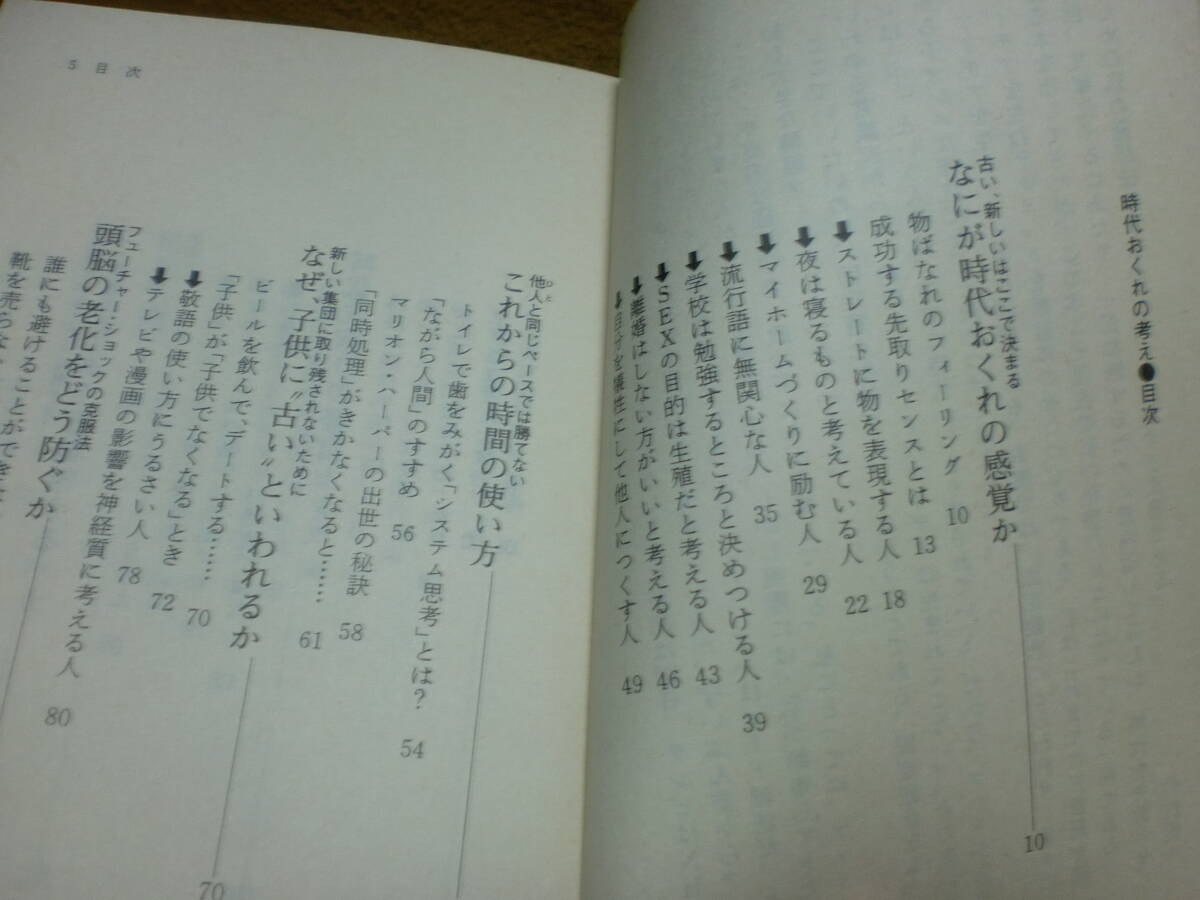 時代おくれの考え●目次
古い、新しいはここで決まる
なにが時代おくれの感覚か
10
物ばなれのフィーリング 10
成功する先取りセンスとは 13
⬇ストレートに物を表現する人 18
⬇夜は寝るものと考えている人 22
⬇マイホームづくりに励む人 29
⬇流行語に無関心な人 35
⬇学校は勉強するところと決めつける人 39
⬇SEXの目的は生殖だと考える人 43
⬇離婚はしない方がいいと考える人 46
⬇自分を犠牲にして他人につくす人 49
5 目次
他人と同じペースでは勝てない
ひと
これからの時間の使い方
トイレで歯をみがく「システム思考」とは? 54
「ながら人間」のすすめ 56
マリオン・ハーパーの出世の秘訣 58
「同時処理」がきかなくなると…… 61
新しい集団に取り残されないために
なぜ、子供に〝古い〟といわれるか
70
ビールを飲んで、デートする…… 70
「子供」が「子供でなくなる」とき 72
⬇敬語の使い方にうるさい人 78
⬇テレビや漫画の影響を神経質に考える人 80
フューチャー・ショックの克服法
頭脳の老化をどう防ぐか
誰にも避けることができ
靴を売らな